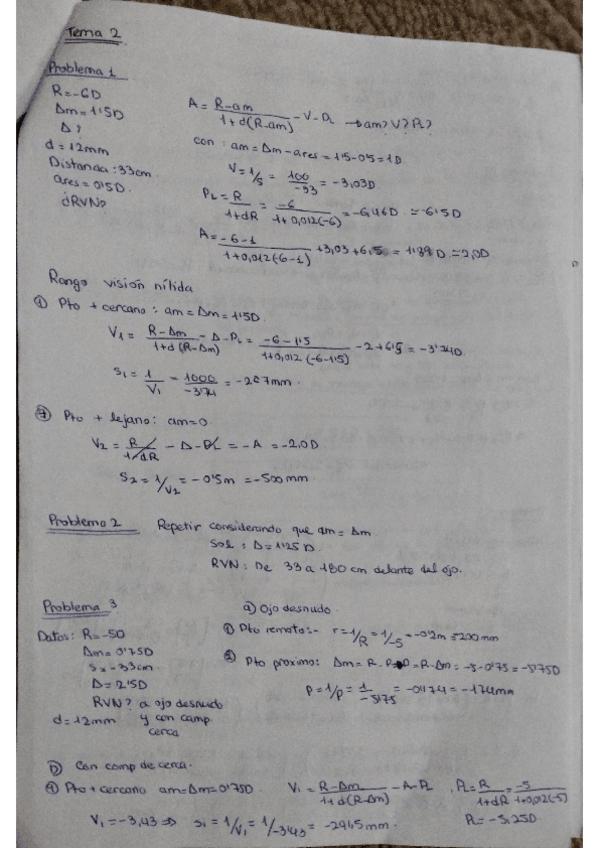 Tema 2
Problema 1
R = -6D
Δm = 1'5D
Δ?
d = 12mm
Distancia: 33cm
ares = 0'5D.
¿RVN?
A = R-am / 1+d(R-am) - V - PL → am? V? PL?
con: am = Δm - ares = 1'5 - 0'5 = 1D
V = 1/S = 100 / -33 = -3,03D
PL = R / 1+dR = -6 / 1+0,012(-6) = -6,46D ≈ -6'5D
A = -6-1 / 1+0,012(-6-1) + 3,03 + 6,5 = 1'89D ≈ 2,0D
Rango visión nítida
① Pto + cercano: am = Δm = 1'5D.
V1 = R-Δm / 1+d(R-Δm) - Δ - PL = -6-1'5 / 1+0,012(-6-1'5) - 2 + 6'5 = -3'74D
S1 = 1 / V1 = 1000 / -3'74 = -267mm.
② Pto + lejano: am = 0
V2 = R / 1+dR - Δ - PL = -A = -2,0D
S2 = 1/V2 = -0'5m = -500mm
Problema 2 Repetir considerando que am = Δm
Sol: Δ = 1'25D.
RVN: De 33 a 180 cm delante del ojo.
Problema 3
Datos: R = -5D
Δm = 0'75D
S = -33cm
Δ = 2'5D
RVN? a ojo desnudo
d = 12mm y con comp.
cerca
a) Ojo desnudo.
① Pto remoto:- r = 1/R = 1/-5 = -0'2m = 200mm
② Pto próximo: Δm = R - P → P = R - Δm = -5 - 0'75 = -5'75D
P = 1/P = 1 / -5'75 = -0'174 = -174mm
b) Con comp de cerca.
① Pto + cercano am = Δm = 0'75D V1 = R-Δm / 1+d(R-Δm) - A - PL PL = R / 1+dR = -5 / 1+0,012(-5)
V1 = -3,43 ⇒ S1 = 1/V1 = 1/-3'43 = -291,5mm. PL = -5,25D